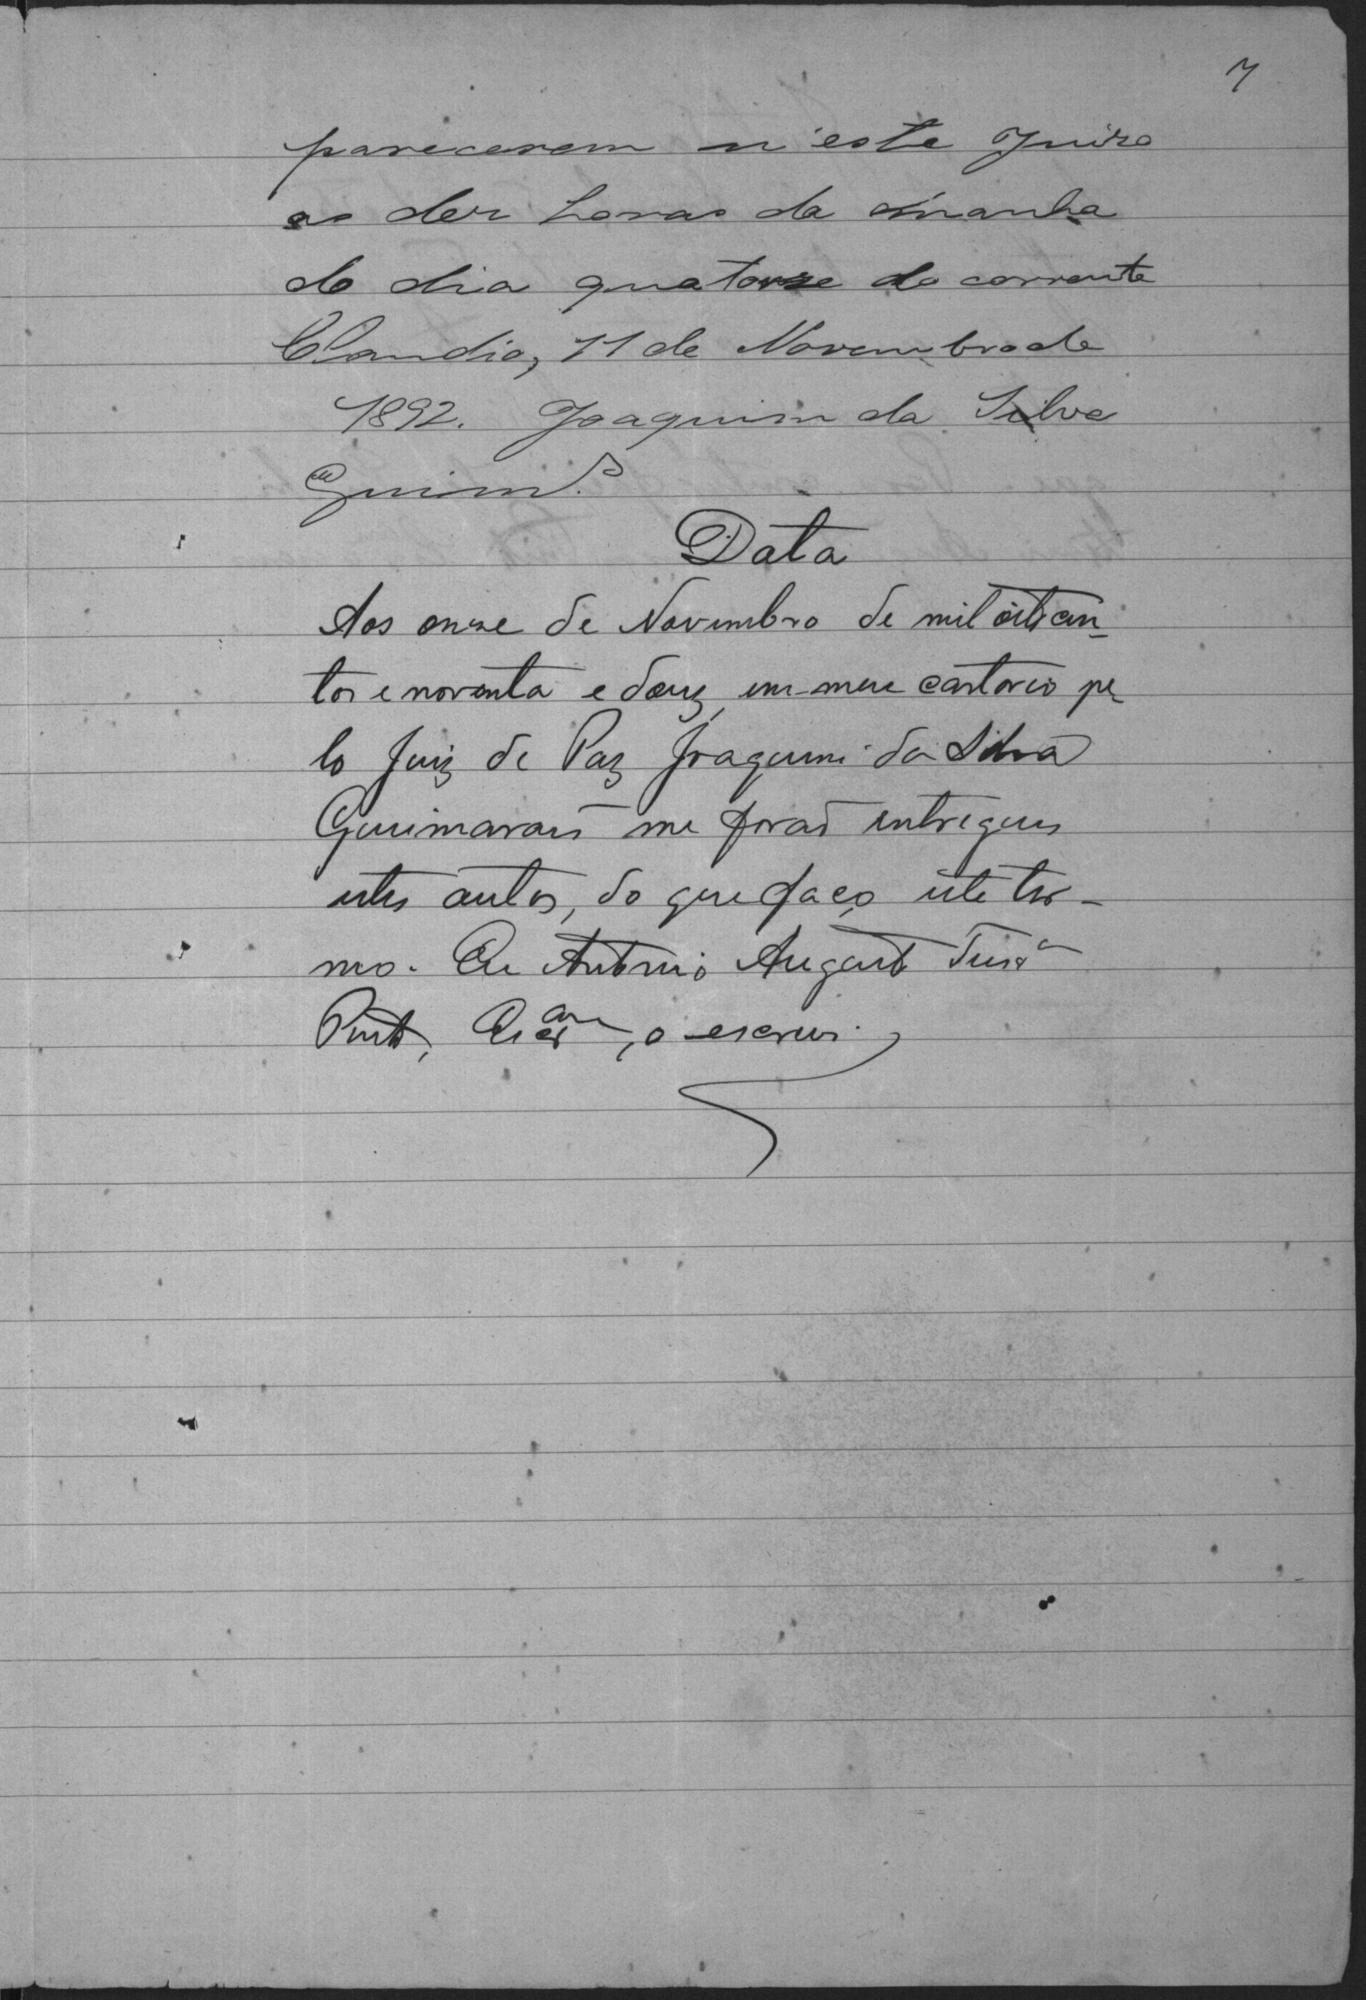 7
parecerem n'este Juizo
as dez horas da manha
do dia quatorze do corrente
Claudio, 11 de Novembro de
1892. Joaquim da Silva
Guim.es
Data
Aos onze de Novembro de mil oitocen-
tos e noventa e dous, em meu cartorio pe-
lo Juiz de Paz Joaquim da Silva
Guimarais me forão entregues
estes autos, do que faço este ter-
mo. Eu Antonio Augusto
Pinto, Escam, o escrevi.